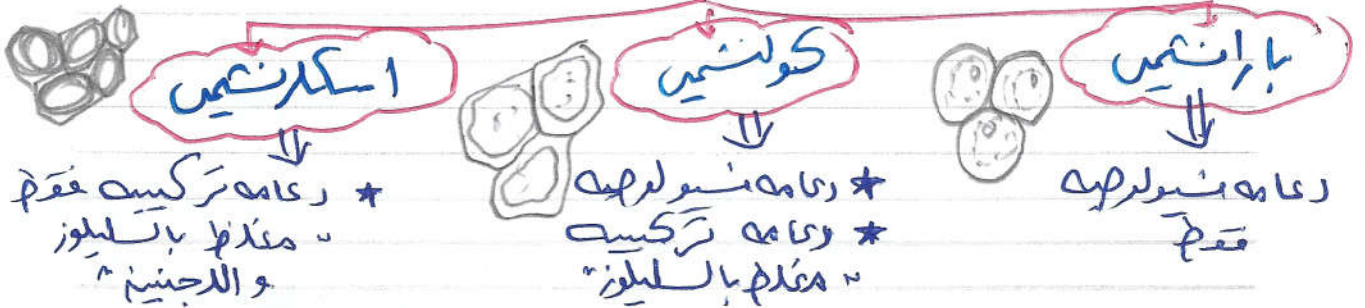 بارانشيمى
دعامه فسيولوجيه
فقط
كولنشيمى
* دعامه فسيولوجيه
* دعامه تركيبيه
"مغلظ بالسليلوز"
اسكلرنشيمى
* دعامه تركيبيه فقط
"مغلظ بالسليلوز
و اللجنين"